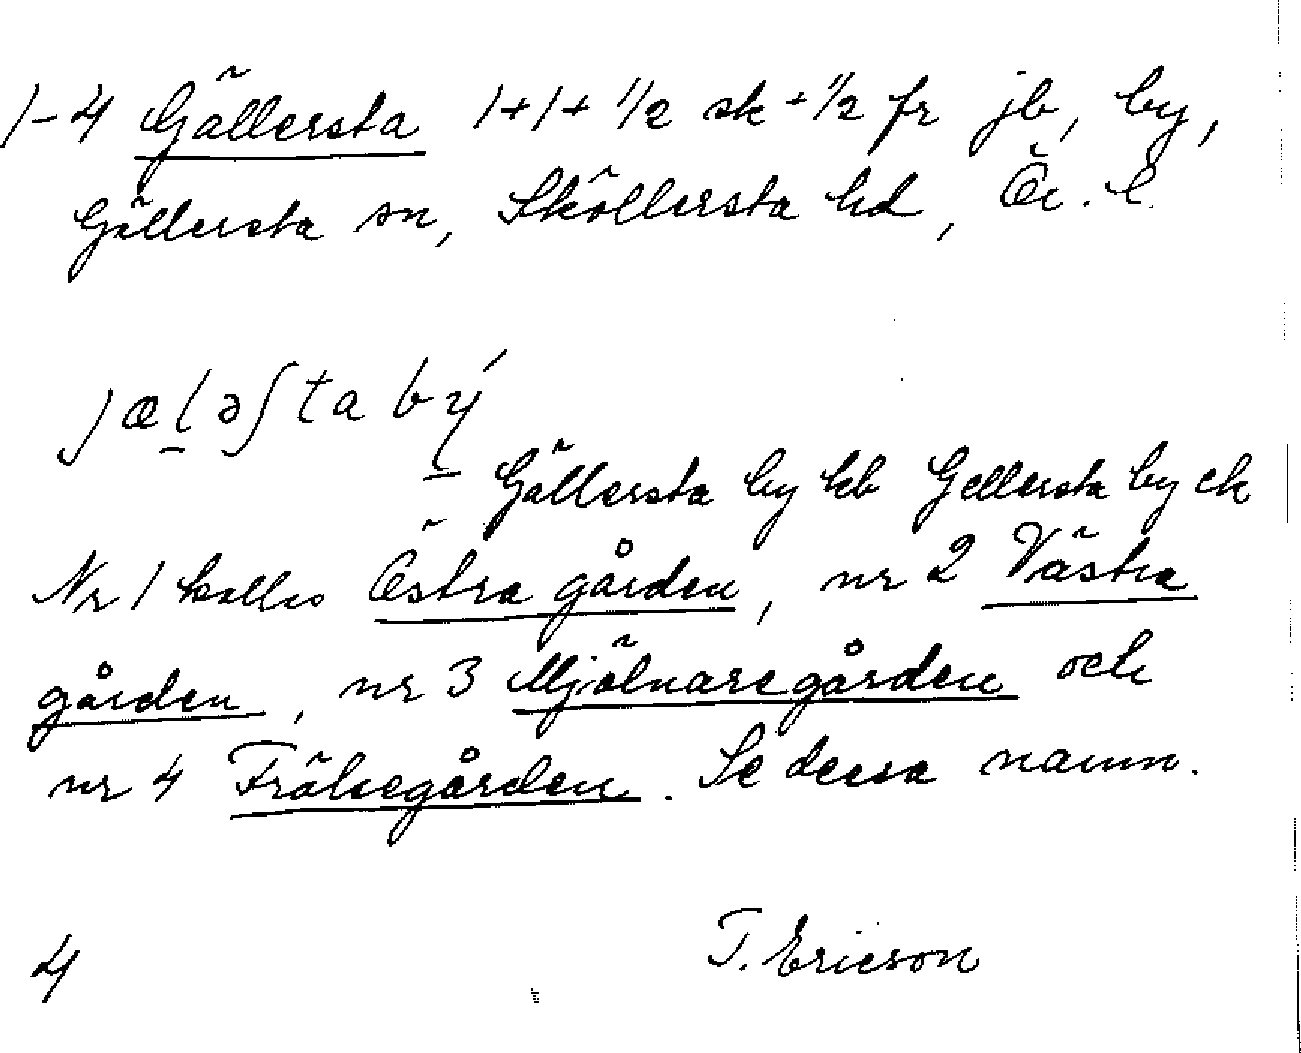 1-4 Gällersta 1+1+1/2 sk + 1/2 fr jb, by,
Gällersta sn, Sköllersta hd, Ör. l.
jæləʃta bý
Gällersta by kb Gellersta by ek
Nr 1 kallas Östra gården, nr 2 Västra
gården, nr 3 Mjölnaregården och
nr 4 Frälsegården. Se dessa namn.
4 T. Ericson